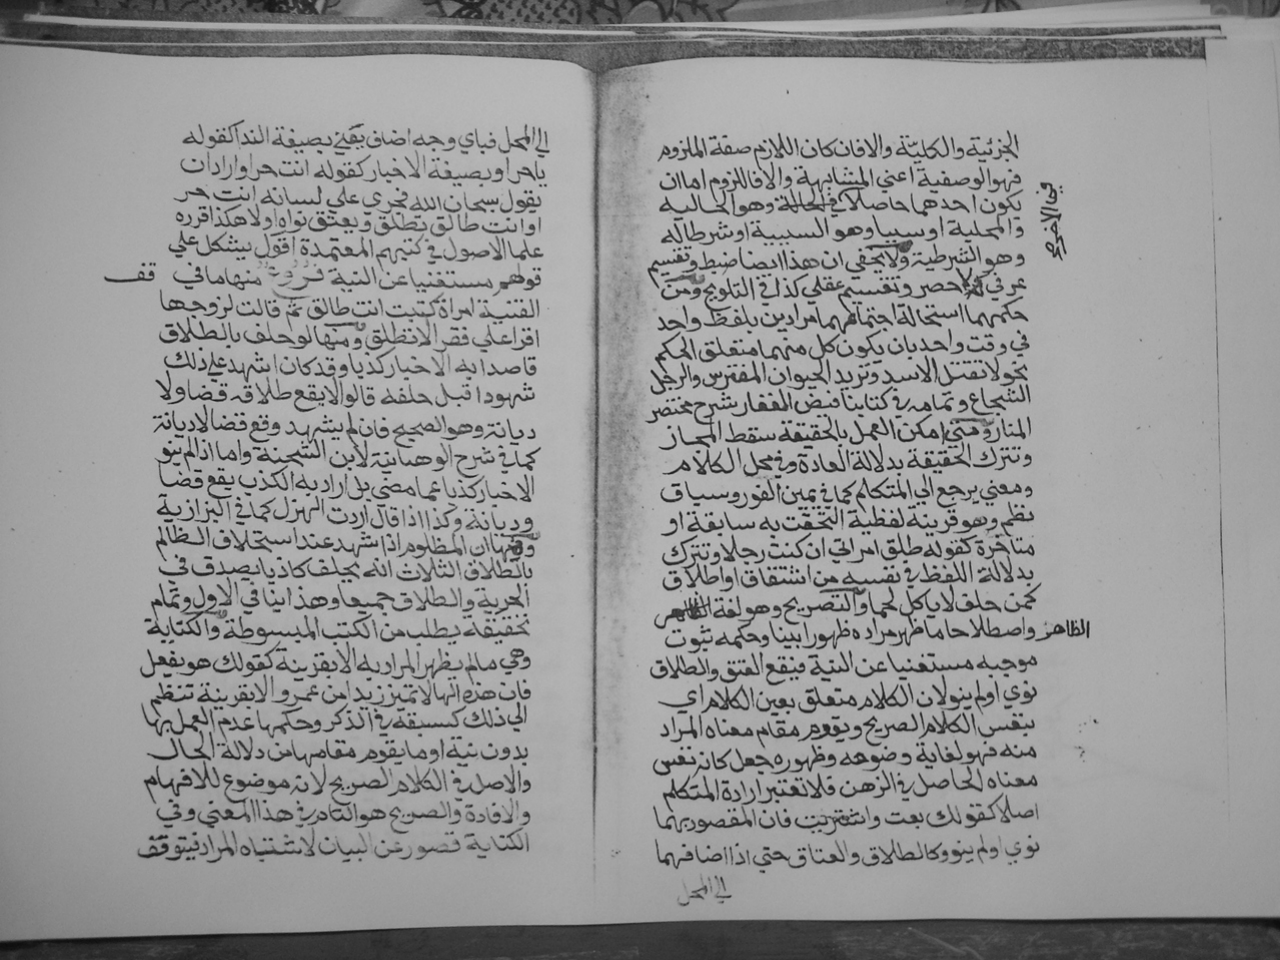 الجزئية والكلية والا فان كان اللازم صفة الملزوم
فهو الوصفية اعني المشابهة والا فاللزوم اما ان
يكون احدهما حاصلا في الحالة وهو الحالية
في الاخر
والمحلية او سببا وهو السببية او شرطا له
وهو الشرطية ولا يخفي ان هذا ايضا ضبط وتقسيم
عرفي لا حصر وتقسيم عقلي كذا في التلويح ومن
حكمهما استحالة اجتماعهما مرادين بلفظ واحد
في وقت واحد بان يكون كل منهما متعلق الحكم
نحو لا تقتل الاسد وتريد الحيوان المفترس والرجل
الشجاع وتمامه في كتابنا فيض الغفار شرح مختصر
المنار ومتي امكن العمل بالحقيقة سقط المجاز
وتترك الحقيقة بدلالة العادة وفي محل الكلام
ومعني يرجع الي المتكلم كما في يمين الفور وسياق
نظم وهو قرينة لفظية التحقت به سابقة او
متاخرة كقوله طلق امراتي ان كنت رجلا وتترك
بدلالة اللفظ في نفسه من اشتقاق او اطلاق
كمن حلف لا ياكل لحما والتصريح وهو لغة
الظاهر واصطلاحا ما ظهر مراده ظهورا بينا وحكمه ثبوت
موجبه مستغنيا عن النية فيقع العتق والطلاق
نوي اولم ينو لان الكلام متعلق بعين الكلام اي
بنفس الكلام الصريح ويقوم مقام معناه المراد
منه فهو لغاية وضوحه وظهوره جعل كانه نفس
معناه الحاصل في الذهن فلا تعتبر ارادة المتكلم
اصلا كقولك بعت واشتريت فان المقصود بهما
نوي اولم ينو وكالطلاق والعتاق حتي اذا اضافهما
الي المحل
الي المحل فباي وجه اضاف يعني بصيغة الندا كقوله
يا حر او بصيغة الاخبار كقوله انت حر او اراد ان
يقول سبحان الله فجري علي لسانه انت حر
او انت طالق يطلق ويعتق نواه اولا هكذا قرره
علما الاصول في كتبهم المعتمدة اقول يشكل علي
قولهم مستغنيا عن النية فروع منها ما في قف
القنية امراة كتبت انت طالق ثم قالت لزوجها
اقرا علي فقرا لا تطلق ومنها لو حلف بالطلاق
قاصدا به الاخبار كذبا وقد كان اشهد علي ذلك
شهودا قبل حلفه قالوا لا يقع طلاقه قضا ولا
ديانة وهو الصحيح فان لم يشهد وقع قضا لا ديانة
كما في شرح الوهبانية لابن الشحنة واما اذا لم ينو
الاخبار كذبا عما مضي بل اراد به الكذب يقع قضا
وديانة وكذا اذا قال اردت الهزل كما في البزازية
ومنها ان المظلوم اذا شهد عند استحلاف الظالم
بالطلاق الثلاث انه يحلف كاذبا يصدق في
الحرية والطلاق جميعا وهذا ينافي الاول وتمام
تحقيقة يطلب من الكتب المبسوطة والكناية
وهي مالم يظهر المراد به الا بقرينة كقولك هو يفعل
فان هذه الها لا تميز زيدا من عمرو الا بقرينة تنظم
الي ذلك كسبقه في الذكر وحكمها عدم العمل بها
بدون نية او ما يقوم مقامها من دلالة الحال
والاصل في الكلام الصريح لانه موضوع للافهام
والافادة والصريح هو التام في هذا المعني وفي
الكناية قصور عن البيان لاشتباه المراد فيتوقف